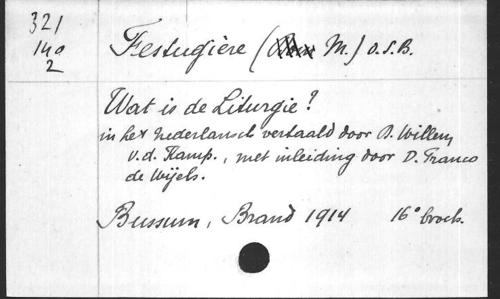 321
140
2
Festugière (M.) O.S.B.
Wat is de Liturgie?
in het Nederlansch vertaald door D. Willem
v.d. Kamp., met inleiding door D. Franco
de Wijels.
Bussum, Brand 1914 16° broch.